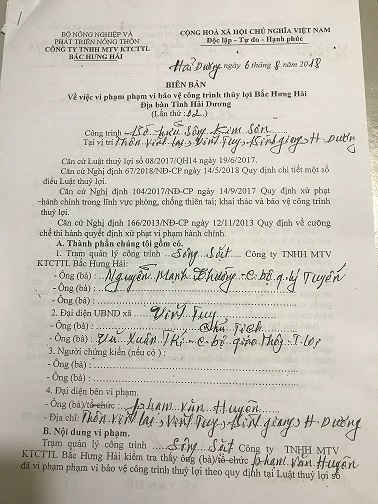 BỘ NÔNG NGHIỆP VÀ
PHÁT TRIỂN NÔNG THÔN
CÔNG TY TNHH MTV KTCTTL
BẮC HƯNG HẢI
CỘNG HOÀ XÃ HỘI CHỦ NGHĨA VIỆT NAM
Độc lập - Tự do - Hạnh phúc
Hải Dương ngày 6 tháng 8 năm 2018
BIÊN BẢN
Về việc vi phạm phạm vi bảo vệ công trình thủy lợi Bắc Hưng Hải
Địa bàn Tỉnh Hải Dương
(Lần thứ: 02..)
Công trình Bờ hữu Sông Kim Sơn
Tại vị trí thôn Vĩnh Lại, Vĩnh Tuy, Bình Giang, H Dương
Căn cứ Luật thuỷ lợi số 08/2017/QH14 ngày 19/6/2017.
Căn cứ Nghị định 67/2018/NĐ-CP ngày 14/5/2018 Quy định chi tiết một số
điều Luật thuỷ lợi.
Căn cứ Nghị định 104/2017/NĐ-CP ngày 14/9/2017 Quy định xử phạt
hành chính trong lĩnh vực phòng, chống thiên tai; khai thác và bảo vệ công trình
thuỷ lợi.
Căn cứ Nghị định 166/2013/NĐ-CP ngày 12/11/2013 Quy định về cưỡng
chế thi hành quyết định xử phạt vi phạm hành chính.
A. Thành phần chúng tôi gồm có.
1. Trạm quản lý công trình ....Sông Sặt.... Công ty TNHH MTV
KTCTTL Bắc Hưng Hải:
- Ông (bà) : Nguyễn Mạnh Khương - C.bộ q.lý Tuyến
- Ông (bà) :
- Ông (bà) :
2. Đại diện UBND xã Vĩnh Tuy
- Ông (bà) : Chủ Tịch
- Ông (bà) : Vũ Xuân Thi - C.bộ giao thông - T.lợi
3. Người chứng kiến (nếu có ) :
- Ông (bà) :
- Ông (bà) :
4. Đại diện bên vi phạm.
- Ông (bà)/tổ chức Phạm Văn Huyên
- Địa chỉ: Thôn Vĩnh Lại, Vĩnh Tuy, Bình Giang, H Dương
B. Nội dung vi phạm.
Trạm quản lý công trình .... Sông Sặt Công ty TNHH MTV
KTCTTL Bắc Hưng Hải kiểm tra thấy ông (bà)/tổ chức Phạm Văn Huyên
đã vi phạm phạm vi bảo vệ công trình thuỷ lợi theo quy định tại Luật thuỷ lợi số